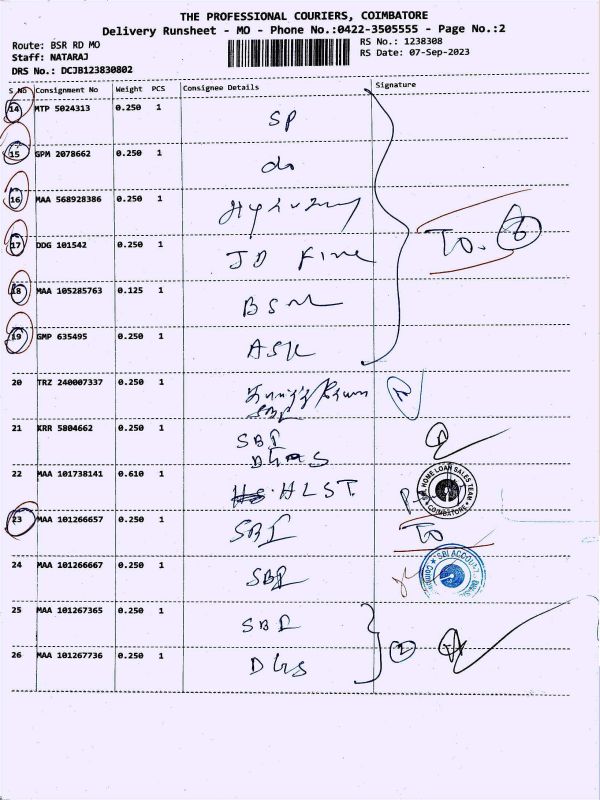 THE PROFESSIONAL COURIERS, COIMBATORE
Delivery Runsheet - MO - Phone No.:0422-3505555 - Page No.:2
Route: BSR RD MO
RS No.: 1238308
Staff: NATARAJ
RS Date: 07-Sep-2023
DRS No.: DCJB123830802
S No Consignment No Weight PCS Consignee Details Signature
14 MTP 5024313 0.250 1 SP
15 GPM 2078662 0.250 1 do
16 MAA 568928386 0.250 1
17 DDG 101542 0.250 1 JD Fine TO. 6
18 MAA 105285763 0.125 1 BSNL
19 GMP 635495 0.250 1 ASK
20 TRZ 240007337 0.250 1
21 KRR 5804662 0.250 1 SBI
22 MAA 101738141 0.610 1 HLST
HOME LOAN SALES TEAM
COIMBATORE
23 MAA 101266657 0.250 1 SBI TO
24 MAA 101266667 0.250 1 SBI
25 MAA 101267365 0.250 1 SBI
26 MAA 101267736 0.250 1